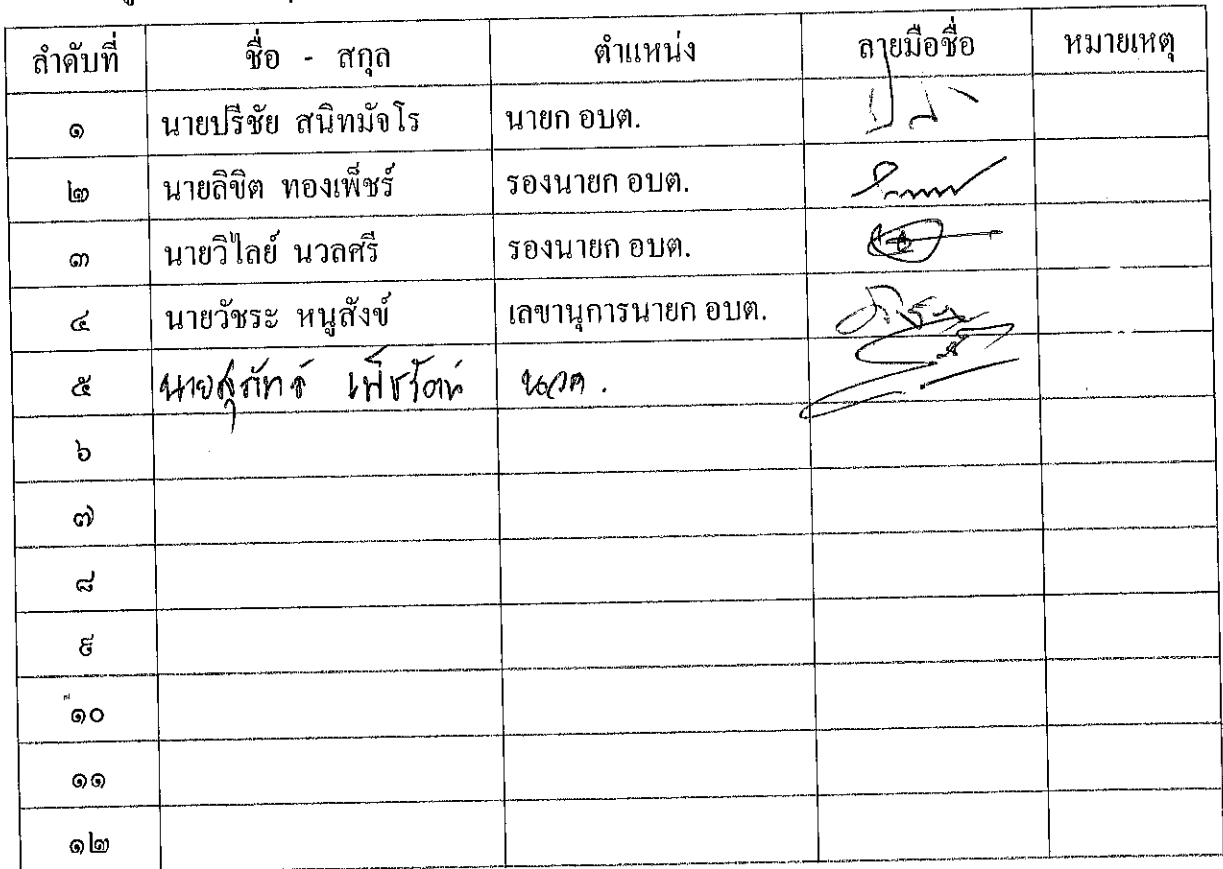 ลำดับที่ ชื่อ - สกุล ตำแหน่ง ลายมือชื่อ หมายเหตุ
๑ นายปรีชัย สนิทมัจโร นายก อบต.
๒ นายลิขิต ทองเพ็ชร์ รองนายก อบต.
๓ นายวิไลย์ นวลศรี รองนายก อบต.
๔ นายวัชระ หนูสังข์ เลขานุการนายก อบต.
๕ นวค.
๖
๗
๘
๙
๑๐
๑๑
๑๒